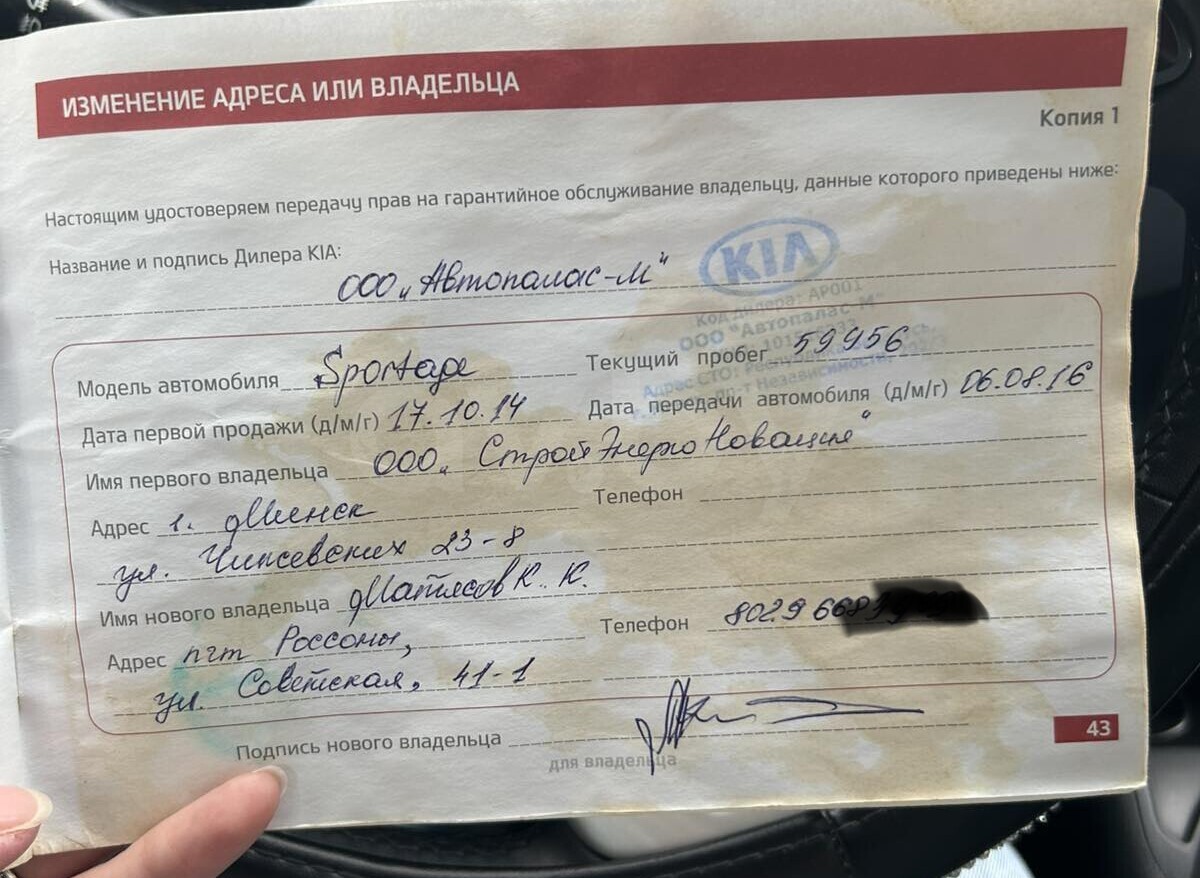 ИЗМЕНЕНИЕ АДРЕСА ИЛИ ВЛАДЕЛЬЦА
Копия 1
Настоящим удостоверяем передачу прав на гарантийное обслуживание владельцу, данные которого приведены ниже:
Название и подпись Дилера KIA:
ООО „Автопалас-М"
KIA
Код дилера: AP001
ООО "Автопалас-М"
Модель автомобиля Sportage Текущий пробег 59956
Адрес СТО: Республика
пр-т Независимости,
Дата первой продажи (д/м/г) 17.10.14 Дата передачи автомобиля (д/м/г) 06.08.16
Имя первого владельца ООО „СтройЭнергоНовация"
Адрес г. Минск Телефон
ул. 23-8
Имя нового владельца К. К.
Адрес пгт Россоны, Телефон 8029
ул. Советская, 41-1
Подпись нового владельца
для владельца
43